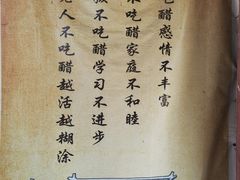 不吃醋感情不丰富
不吃醋家庭不和睦
不吃醋学习不进步
人不吃醋越活越糊涂